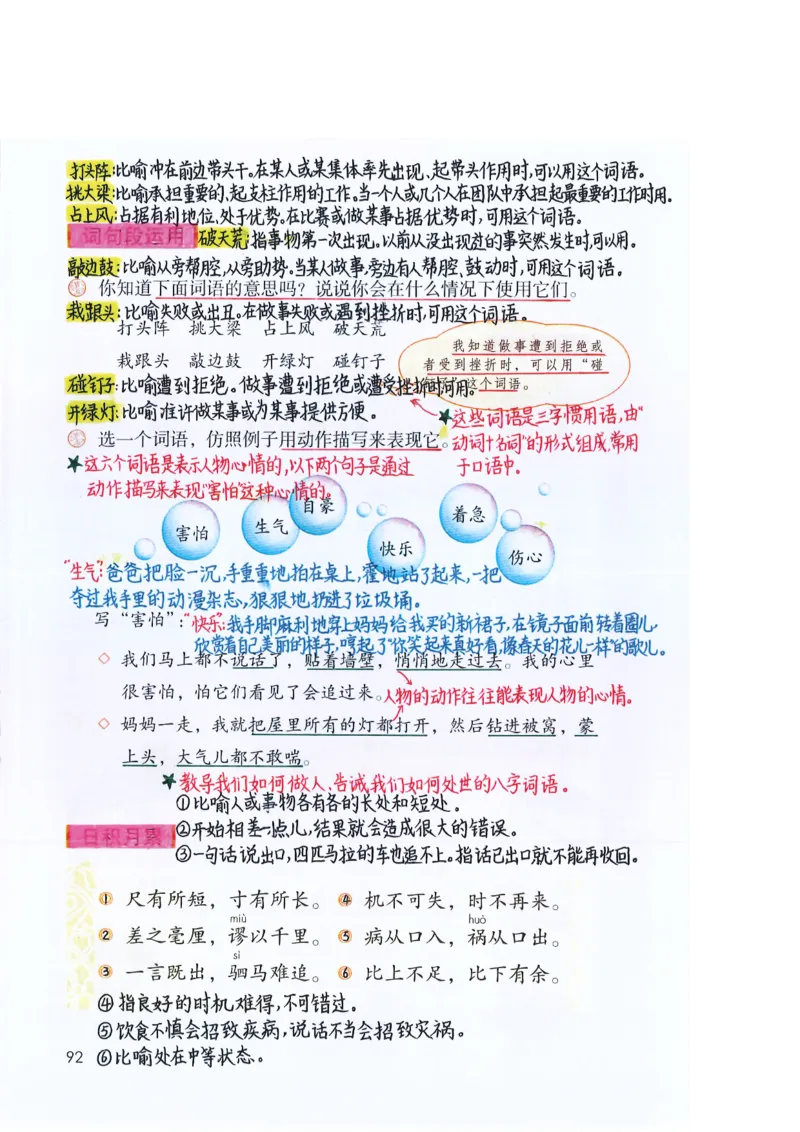 打头阵:比喻冲在前边带头干。在某人或某集体率先出现、起带头作用时,可以用这个词语。
挑大梁:比喻承担重要的、起支柱作用的工作。当一个人或几个人在团队中承担起最重要的工作时用。
占上风:占据有利地位、处于优势。在比赛或做某事占据优势时,可用这个词语。
词句段运用 破天荒:指事物第一次出现。以前从没出现过的事突然发生时,可以用。
敲边鼓:比喻从旁帮腔,从旁助势。当某人做事,旁边有人帮腔、鼓动时,可用这个词语。
你知道下面词语的意思吗?说说你会在什么情况下使用它们。
栽跟头:比喻失败或出丑。在做事失败或遇到挫折时,可用这个词语。
打头阵 挑大梁 占上风 破天荒
我知道做事遭到拒绝或
栽跟头 敲边鼓 开绿灯 碰钉子
者受到挫折时,可以用“碰
钉子”这个词语。
碰钉子:比喻遭到拒绝。做事遭到拒绝或遭受挫折时可用。
开绿灯:比喻准许做某事或为某事提供方便。
★这些词语是三字惯用语,由“
选一个词语,仿照例子用动作描写来表现它。
动词+名词”的形式组成,常用
于口语中。
★这六个词语是表示人物心情的,以下两个句子是通过
动作描写来表现“害怕”这种心情的。
害怕 生气 自豪 快乐 着急 伤心
“生气”:爸爸把脸一沉,手重重地拍在桌上,霍地站了起来,一把
夺过我手里的动漫杂志,狠狠地扔进了垃圾桶。
写“害怕”:
“快乐”:我手脚麻利地穿上妈妈给我买的新裙子,在镜子面前转着圈儿,
欣赏着自己美丽的样子,哼起了“你笑起来真好看,像春天的花儿一样”的歌儿。
◇ 我们马上都不说话了,贴着墙壁,悄悄地走过去。我的心里
很害怕,怕它们看见了会追过来。
人物的动作往往能表现人物的心情。
◇ 妈妈一走,我就把屋里所有的灯都打开,然后钻进被窝,蒙
上头,大气儿都不敢喘。
★教导我们如何做人、告诫我们如何处世的八字词语。
①比喻人或事物各有各的长处和短处。
日积月累
②开始相差一点儿,结果就会造成很大的错误。
③一句话说出口,四匹马拉的车也追不上。指话已出口就不能再收回。
① 尺有所短,寸有所长。 ④ 机不可失,时不再来。
miù huò
② 差之毫厘,谬以千里。 ⑤ 病从口入,祸从口出。
sì
③ 一言既出,驷马难追。 ⑥ 比上不足,比下有余。
④指良好的时机难得,不可错过。
⑤饮食不慎会招致疾病,说话不当会招致灾祸。
92 ⑥比喻处在中等状态。